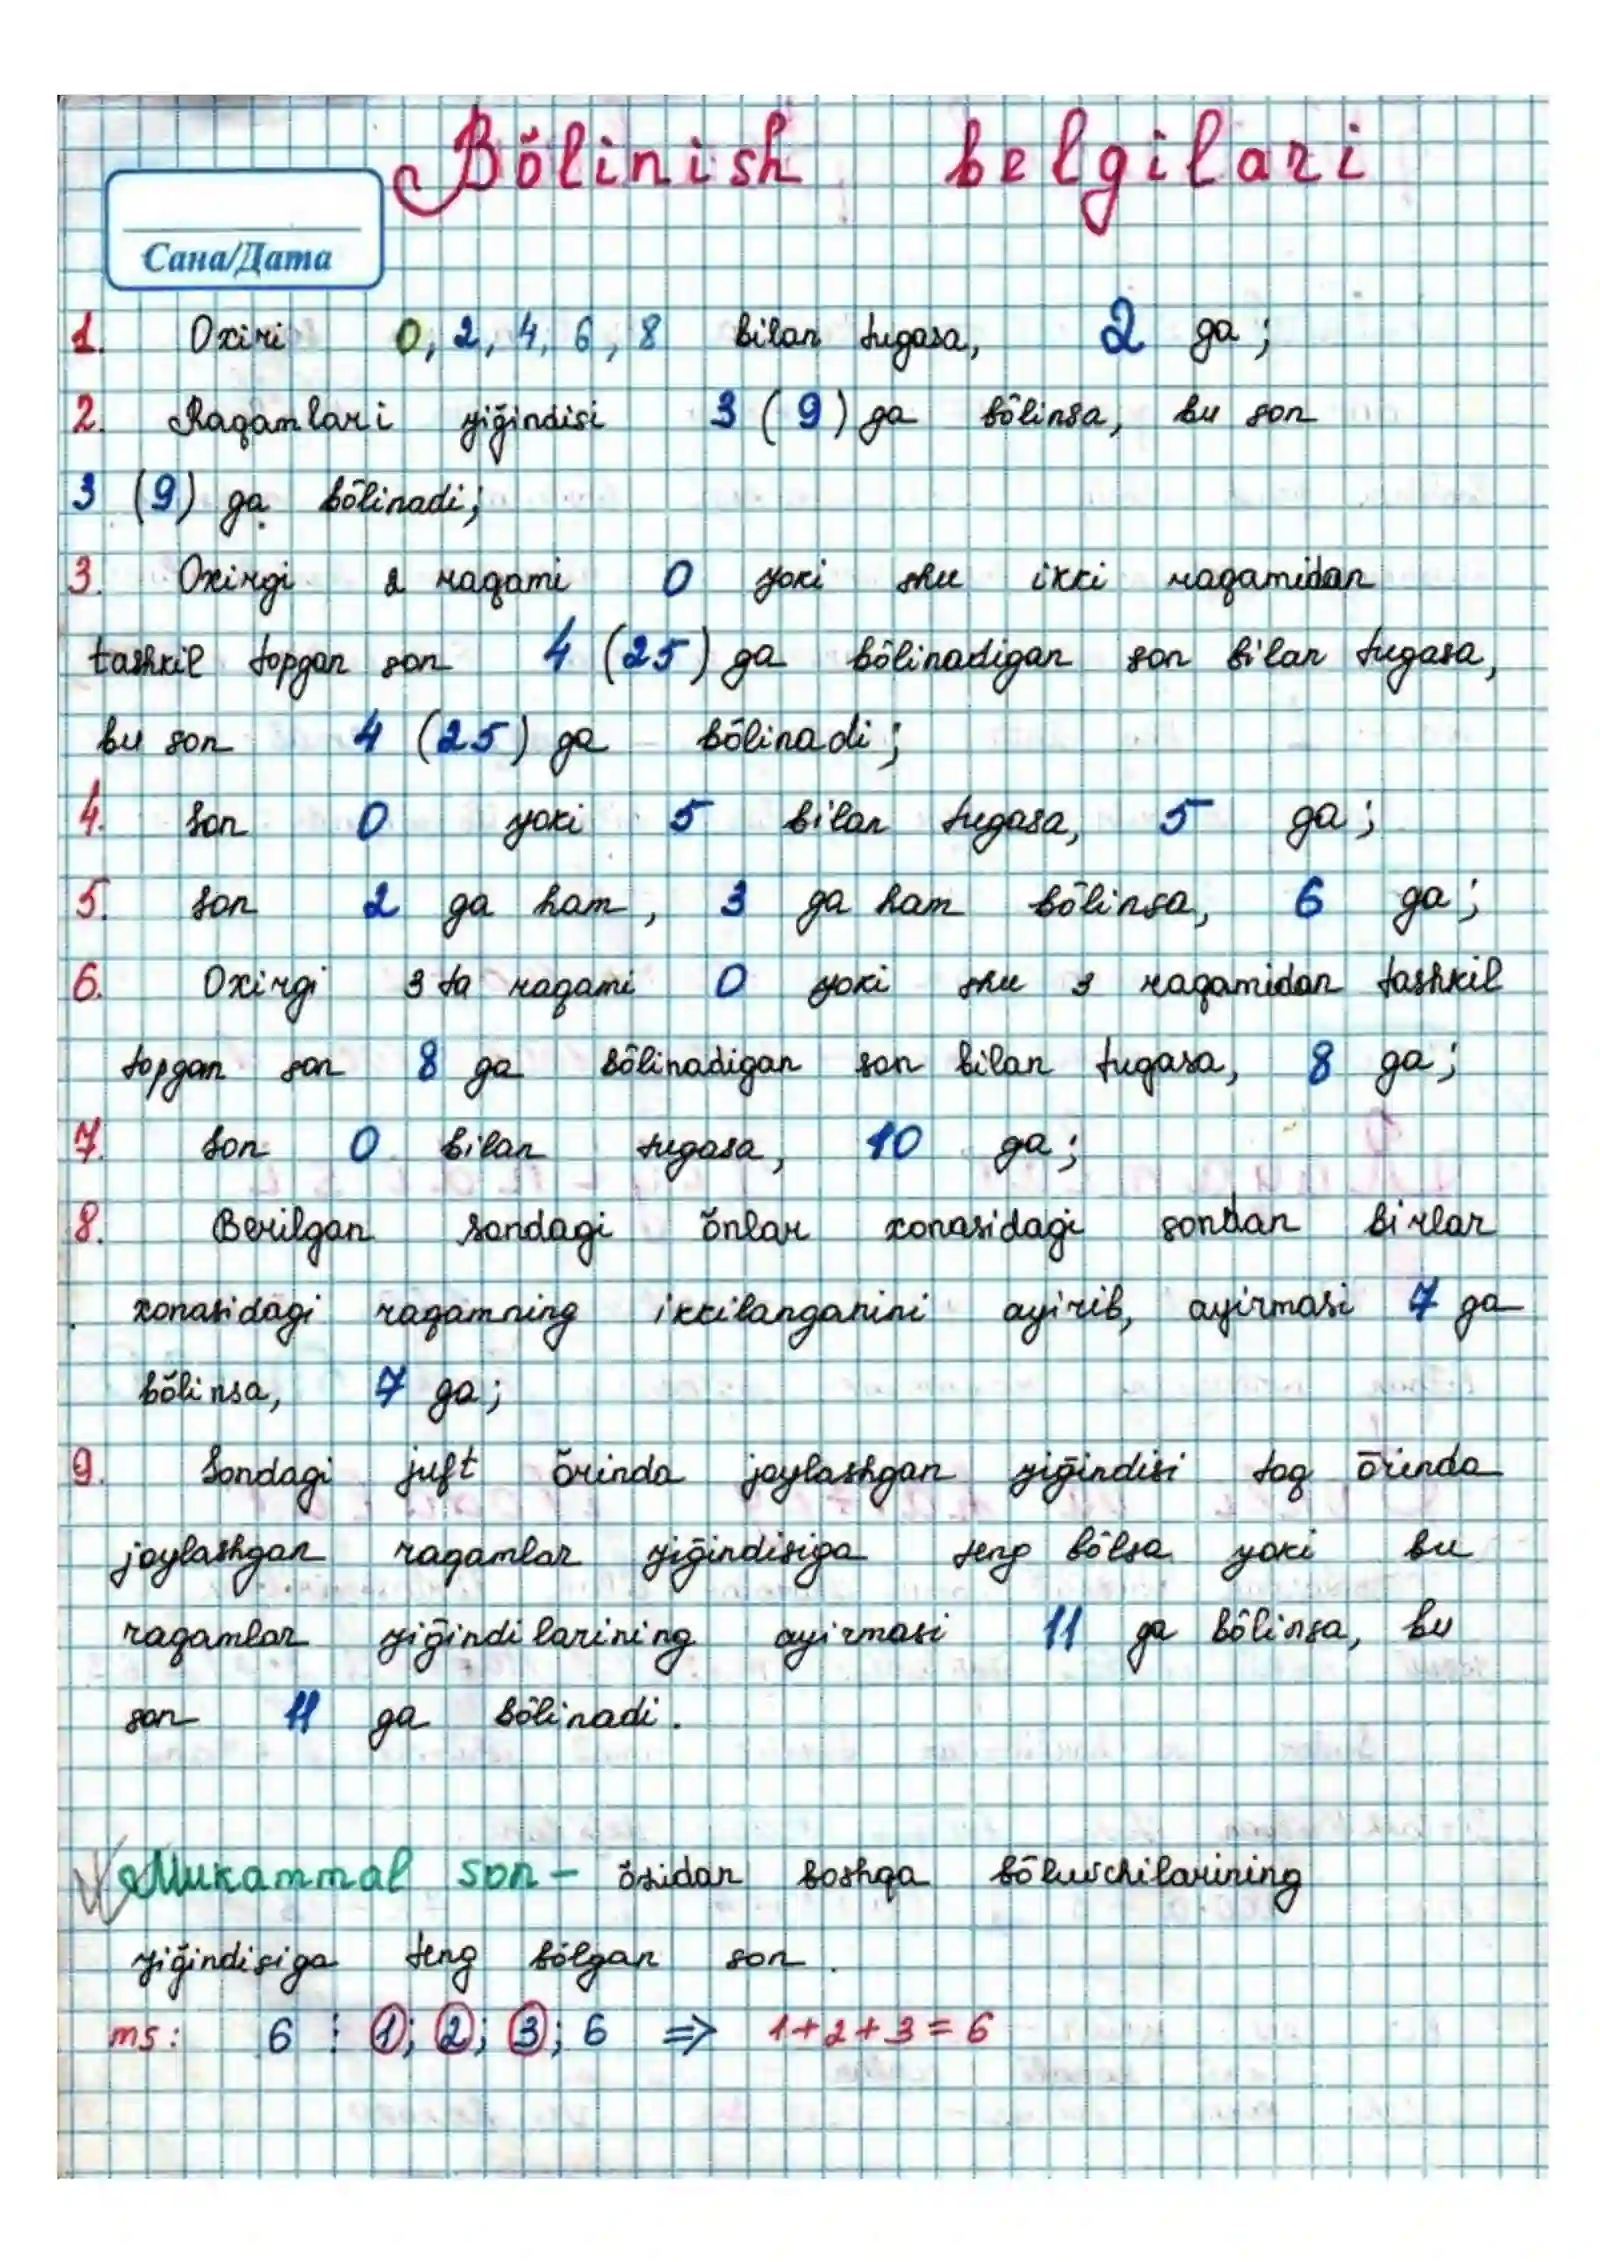 Bŏlinish belgilari
Сана/Дата
1. Oxiri 0, 2, 4, 6, 8 bilan tugasa, 2 ga;
2. Raqamlari yiğindisi 3 (9) ga bŏlinsa, bu son
3 (9) ga bŏlinadi;
3. Oxirgi 2 raqami 0 yoki shu ikki raqamidan
tashkil topgan son 4 (25) ga bŏlinadigan son bilan tugasa,
bu son 4 (25) ga bŏlinadi;
4. Son 0 yoki 5 bilan tugasa, 5 ga;
5. Son 2 ga ham, 3 ga ham bŏlinsa, 6 ga;
6. Oxirgi 3 ta raqami 0 yoki shu 3 raqamidan tashkil
topgan son 8 ga bŏlinadigan son bilan tugasa, 8 ga;
7. Son 0 bilan tugasa, 10 ga;
8. Berilgan sondagi ŏnlar xonasidagi sondan birlar
xonasidagi raqamning ikkilanganini ayirib, ayirmasi 7 ga
bŏlinsa, 7 ga;
9. Sondagi juft ŏrinda joylashgan yiğindisi toq ŏrinda
joylashgan raqamlar yiğindisiga teng bŏlsa yoki bu
raqamlar yiğindilarining ayirmasi 11 ga bŏlinsa, bu
son 11 ga bŏlinadi.
Mukammal son – ŏzidan boshqa bŏluvchilarining
yiğindisiga teng bŏlgan son.
ms: 6 ⋮ 1; 2; 3; 6 ⇒ 1+2+3=6